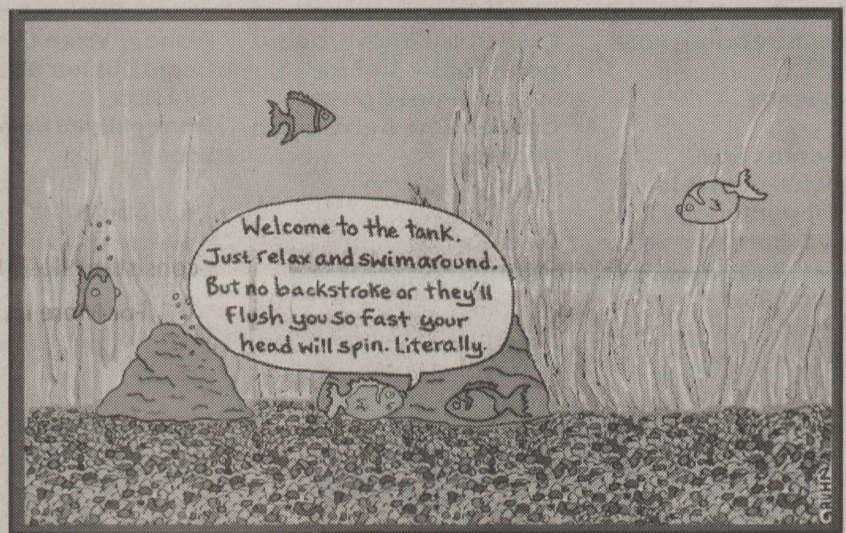 Welcome to the tank.
Just relax and swim around.
But no backstroke or they'll
flush you so fast your
head will spin. Literally.